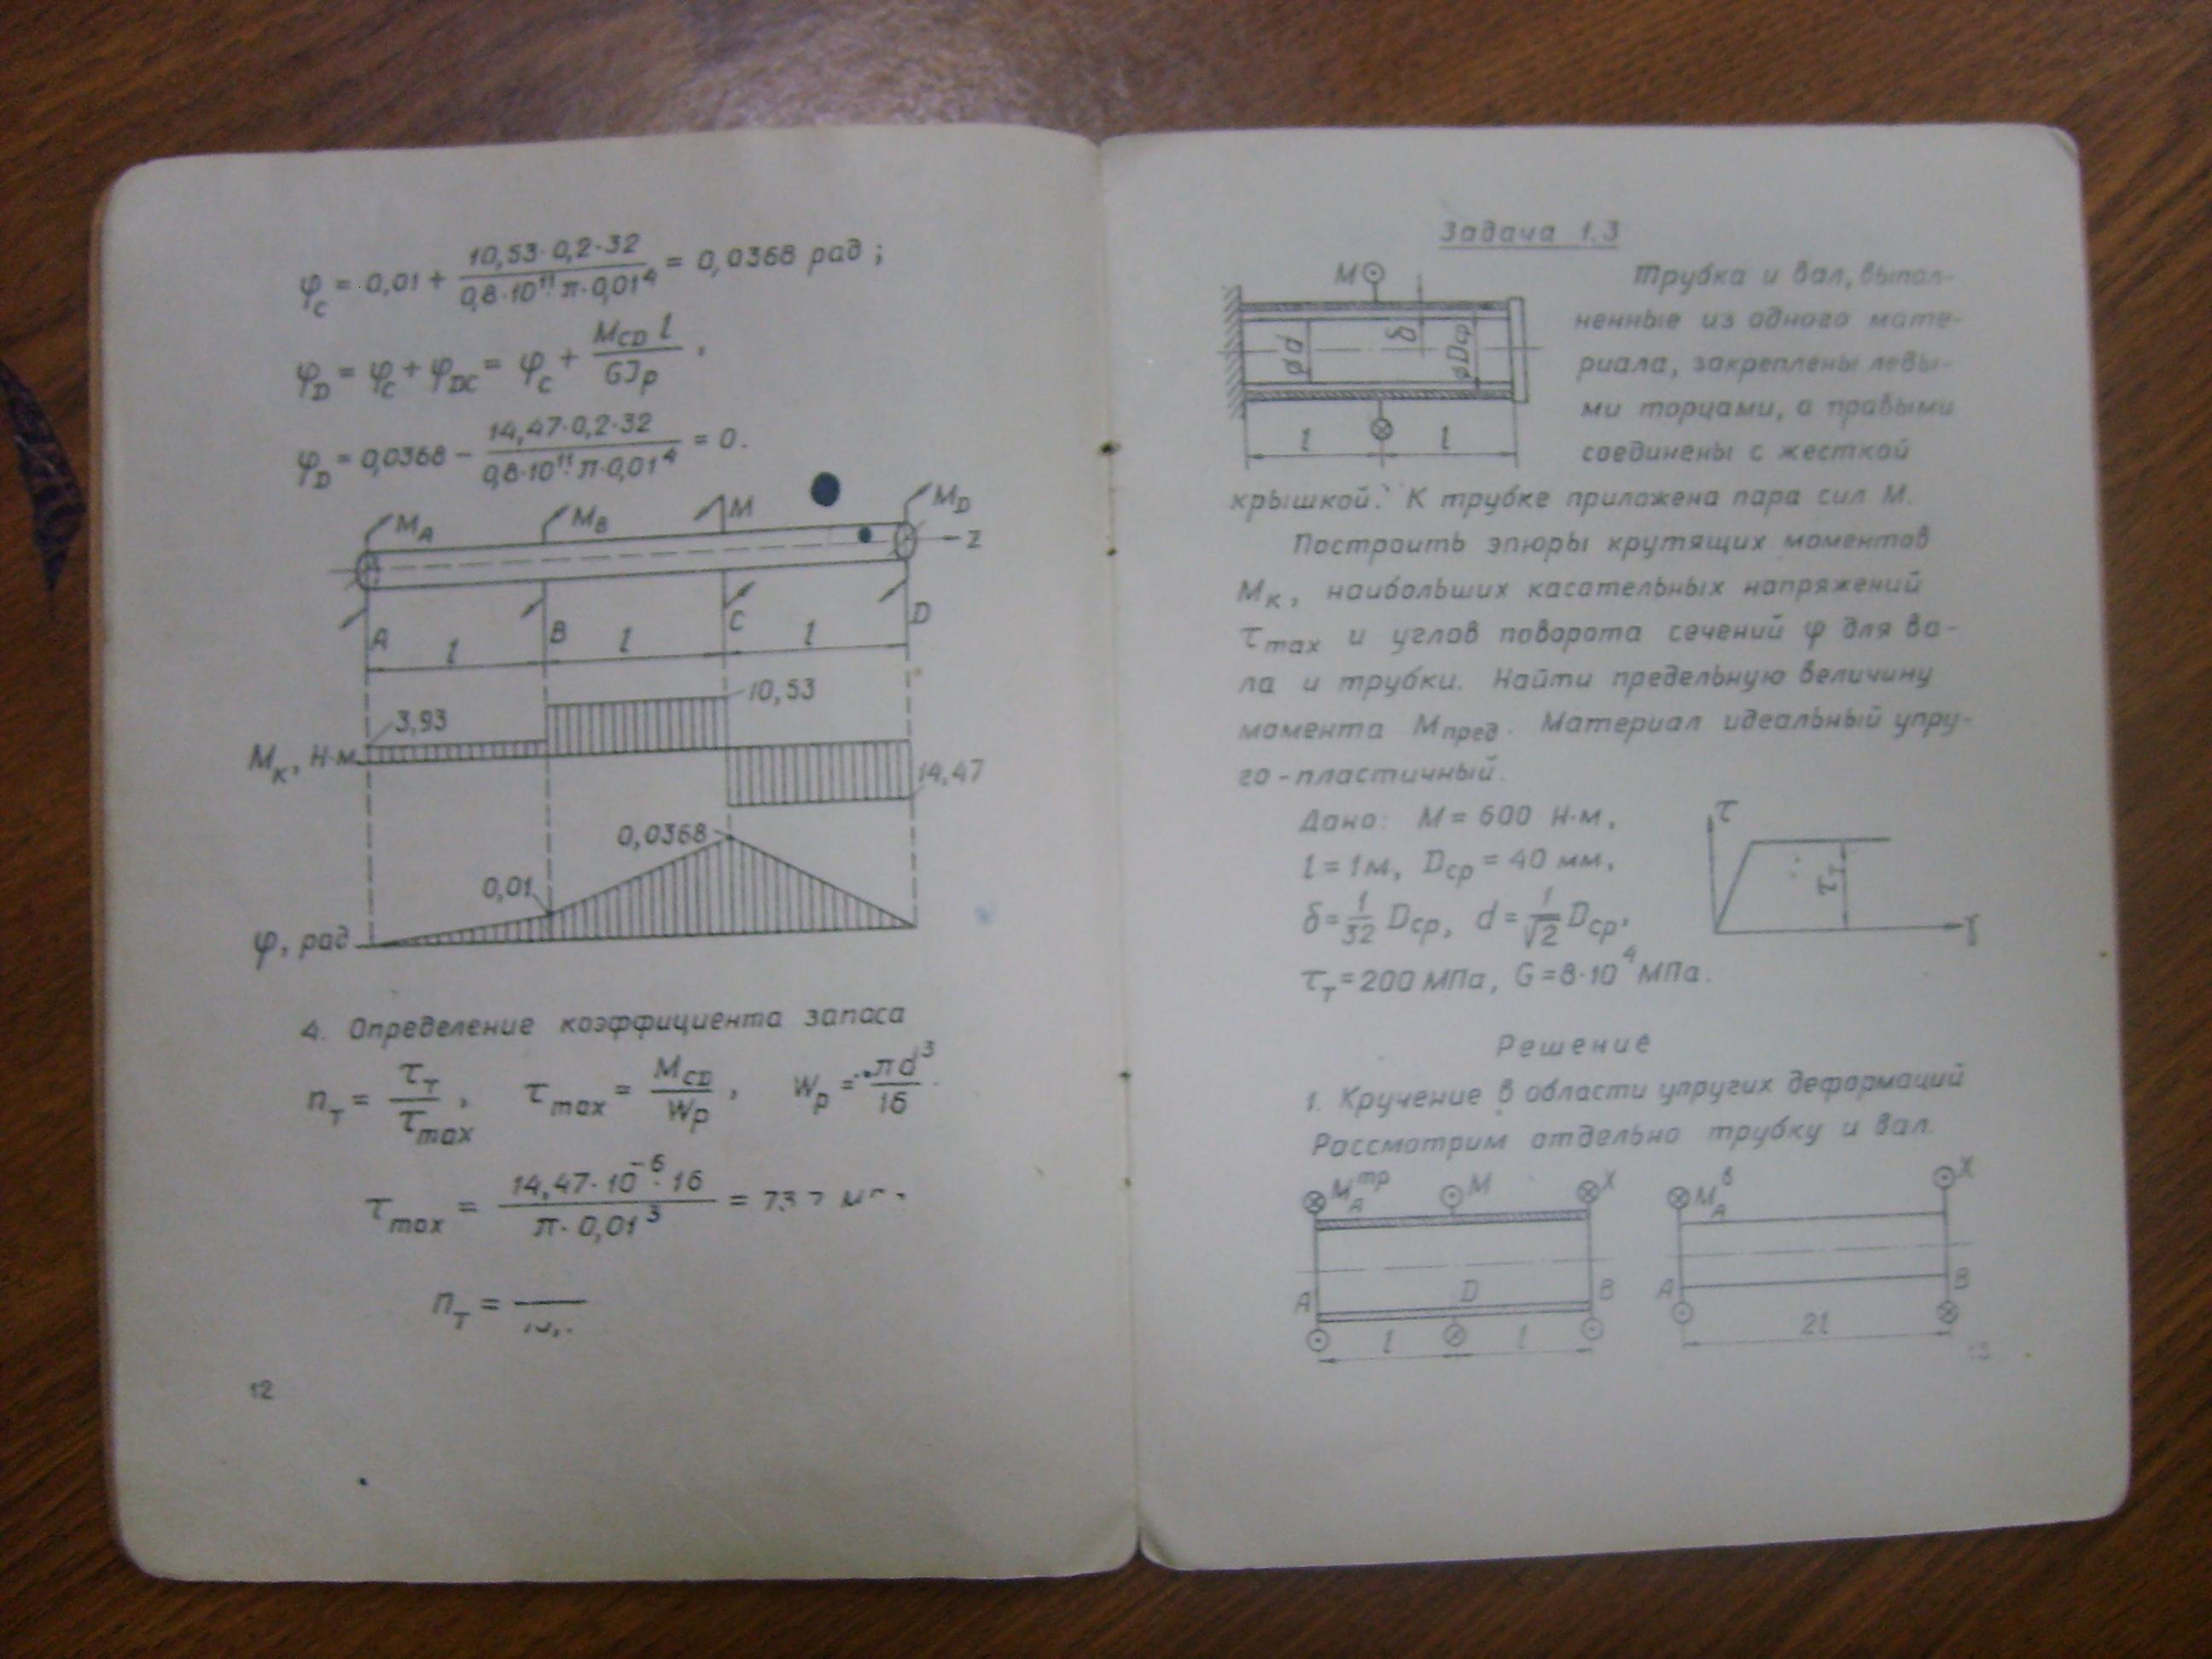 φ_C = 0,01 + 10,53·0,2·32 / 0,8·10¹¹·π·0,01⁴ = 0,0368 рад ;
φ_D = φ_C + φ_DC = φ_C + M_CD l / GJ_p ,
φ_D = 0,0368 − 14,47·0,2·32 / 0,8·10¹¹·π·0,01⁴ = 0.
M_A M_B M M_D z
A B C D
l l l
10,53
3,93
M_к, Н·м
14,47
0,0368
0,01
φ, рад
4. Определение коэффициента запаса
n_T = τ_T / τ_max , τ_max = M_CD / W_p , W_p = πd³ / 16
τ_max = 14,47·10⁻⁶·16 / π·0,01³ =
n_T =
12
Задача 1.3
M
⌀d δ ⌀Dср
l l
Трубка и вал, выпол-
ненные из одного мате-
риала, закреплены левы-
ми торцами, а правыми
соединены с жесткой
крышкой. К трубке приложена пара сил М.
Построить эпюры крутящих моментов
M_к, наибольших касательных напряжений
τ_max и углов поворота сечений φ для ва-
ла и трубки. Найти предельную величину
момента Mпред. Материал идеальный упру-
го-пластичный.
Дано: M = 600 Н·м,
l = 1м, Dср = 40 мм,
δ = 1/32 Dср, d = 1/√2 Dср,
τ_T = 200 МПа, G = 8·10⁴ МПа.
τ
τ_T
γ
Решение
1. Кручение в области упругих деформаций
Рассмотрим отдельно трубку и вал.
M_A^тр M X M_A^в X
A D B A B
l l 2l